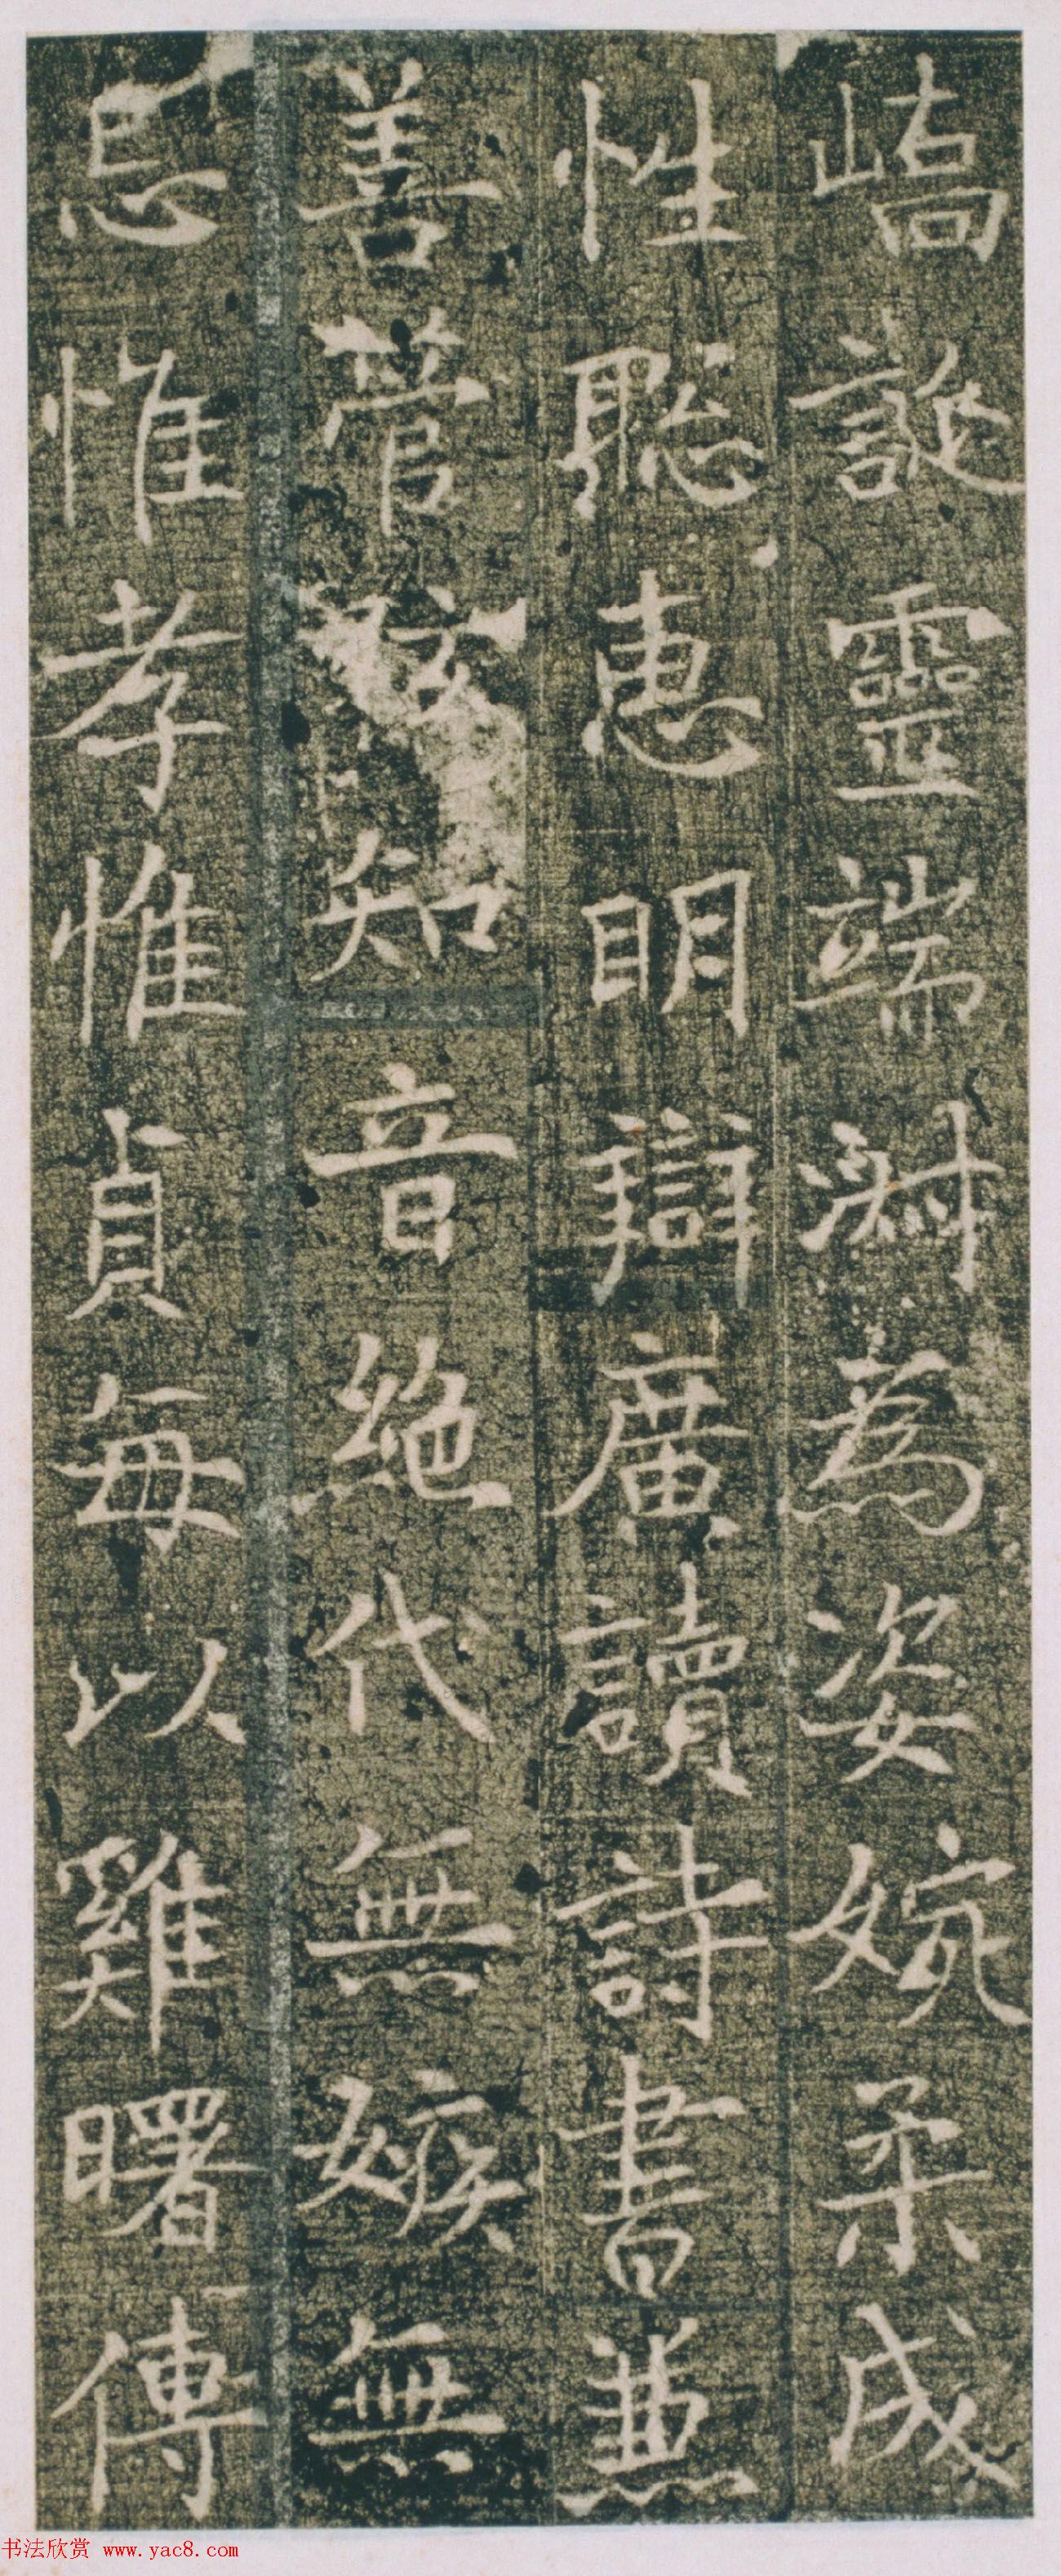 嶠誕靈端淑為姿婉柔成
性聰惠明辯廣讀詩書兼
善管弦知音絕代無嫉無
忌惟孝惟貞每以雞曙傳
书法欣赏 www.yac8.com